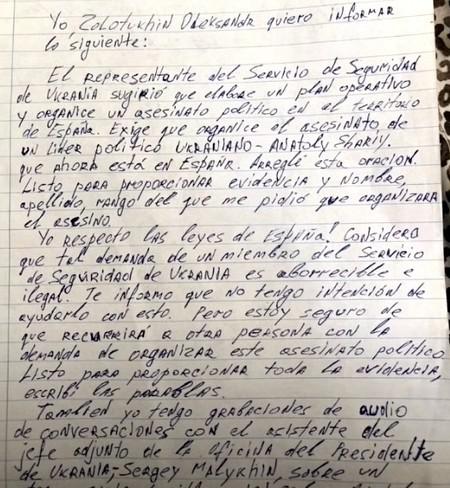 Yo Zolotukhin Oleksandr quiero informar
lo siguiente:
El representante del Servicio de Seguridad
de Ukrania sugirió que elabore un plan operativo
y organice un asesinato político en el territorio
de España. Exige que organice el asesinato de
un líder político ukraniano - Anatoly Shariy.
que ahora está en España. Arreglé esta oracion.
Listo para proporcionar evidencia y nombre,
apellido, rango del que me pidió que organizara
el asesino.
Yo respecto las leyes de España! Considero
que tal demanda de un miembro del Servicio
de Seguridad de Ukrania es aborrecible e
ilegal! Te informo que no tengo intención de
ayudarlo con esto. Pero estoy seguro de
que recurrirá a otra persona con la
demanda de organizar este asesinato político.
Listo para proporcionar toda la evidencia,
escribí las palablas.
Tambien yo tengo grabaciones de audio
de conversaciones con el asistente del
jefe adjunto de la oficina del Presidente
de Ukrania, - Sergey Malykhin, sobre un